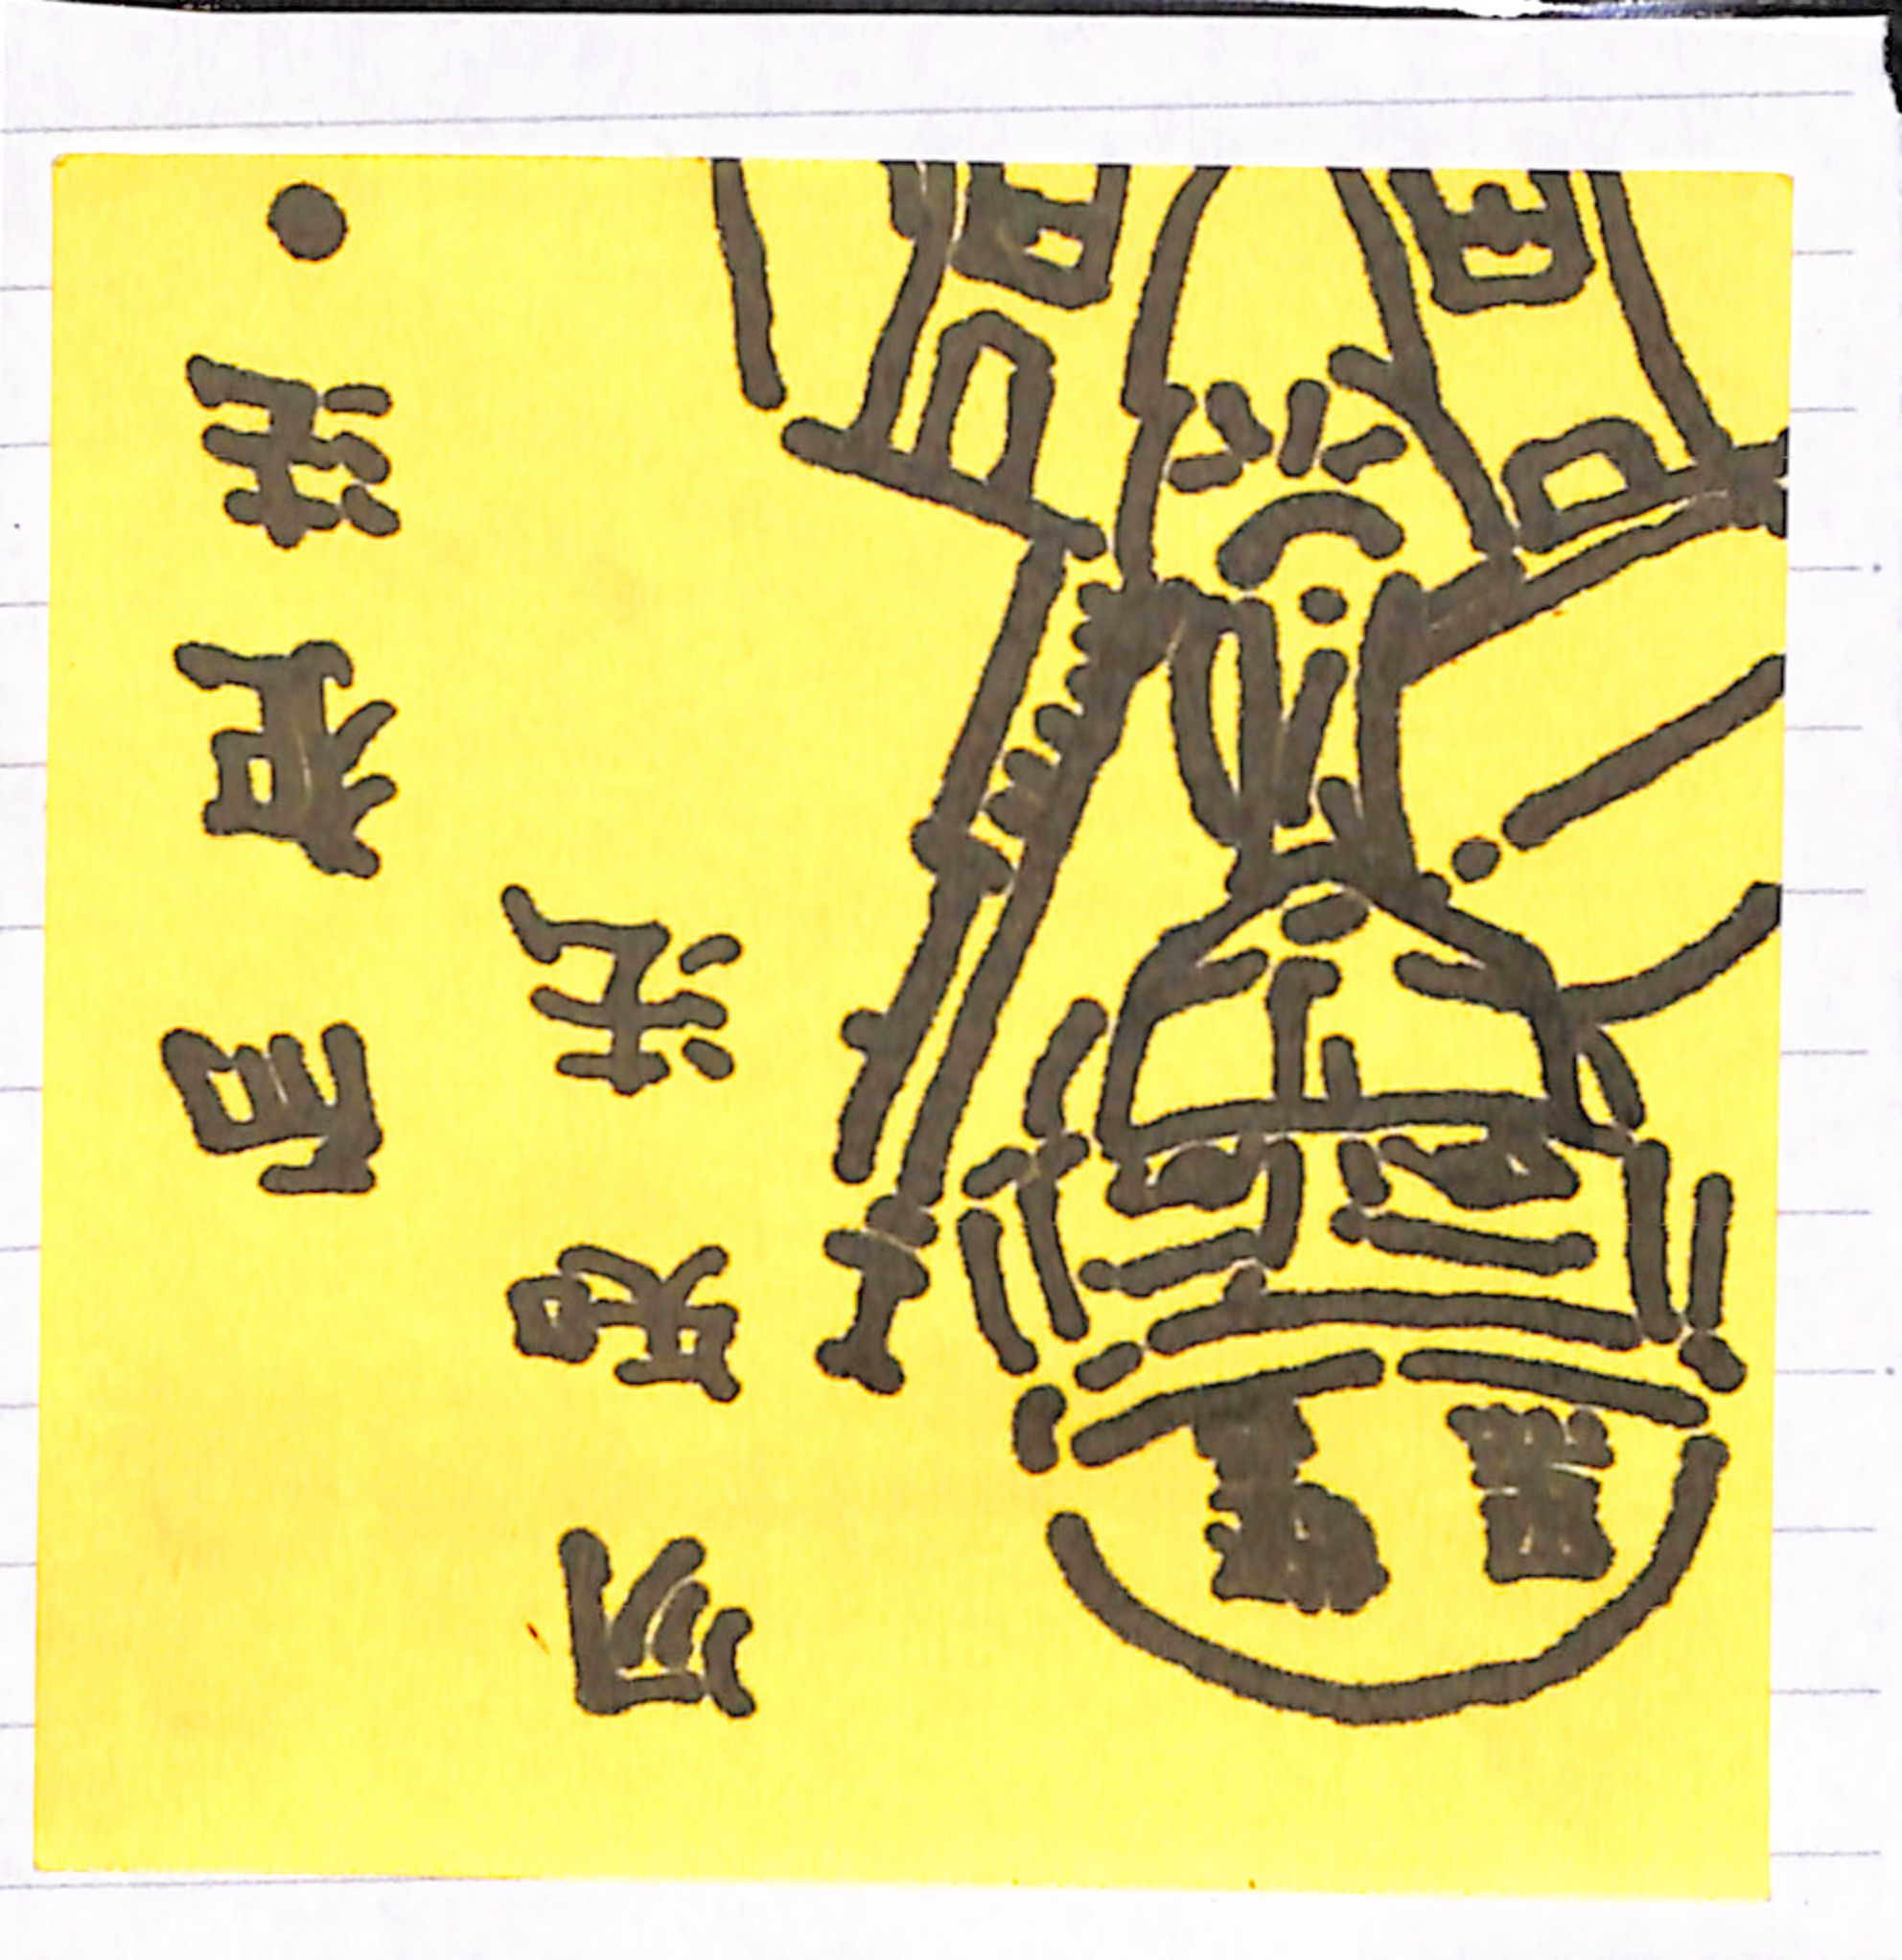 黑警
勿知法
而犯法。